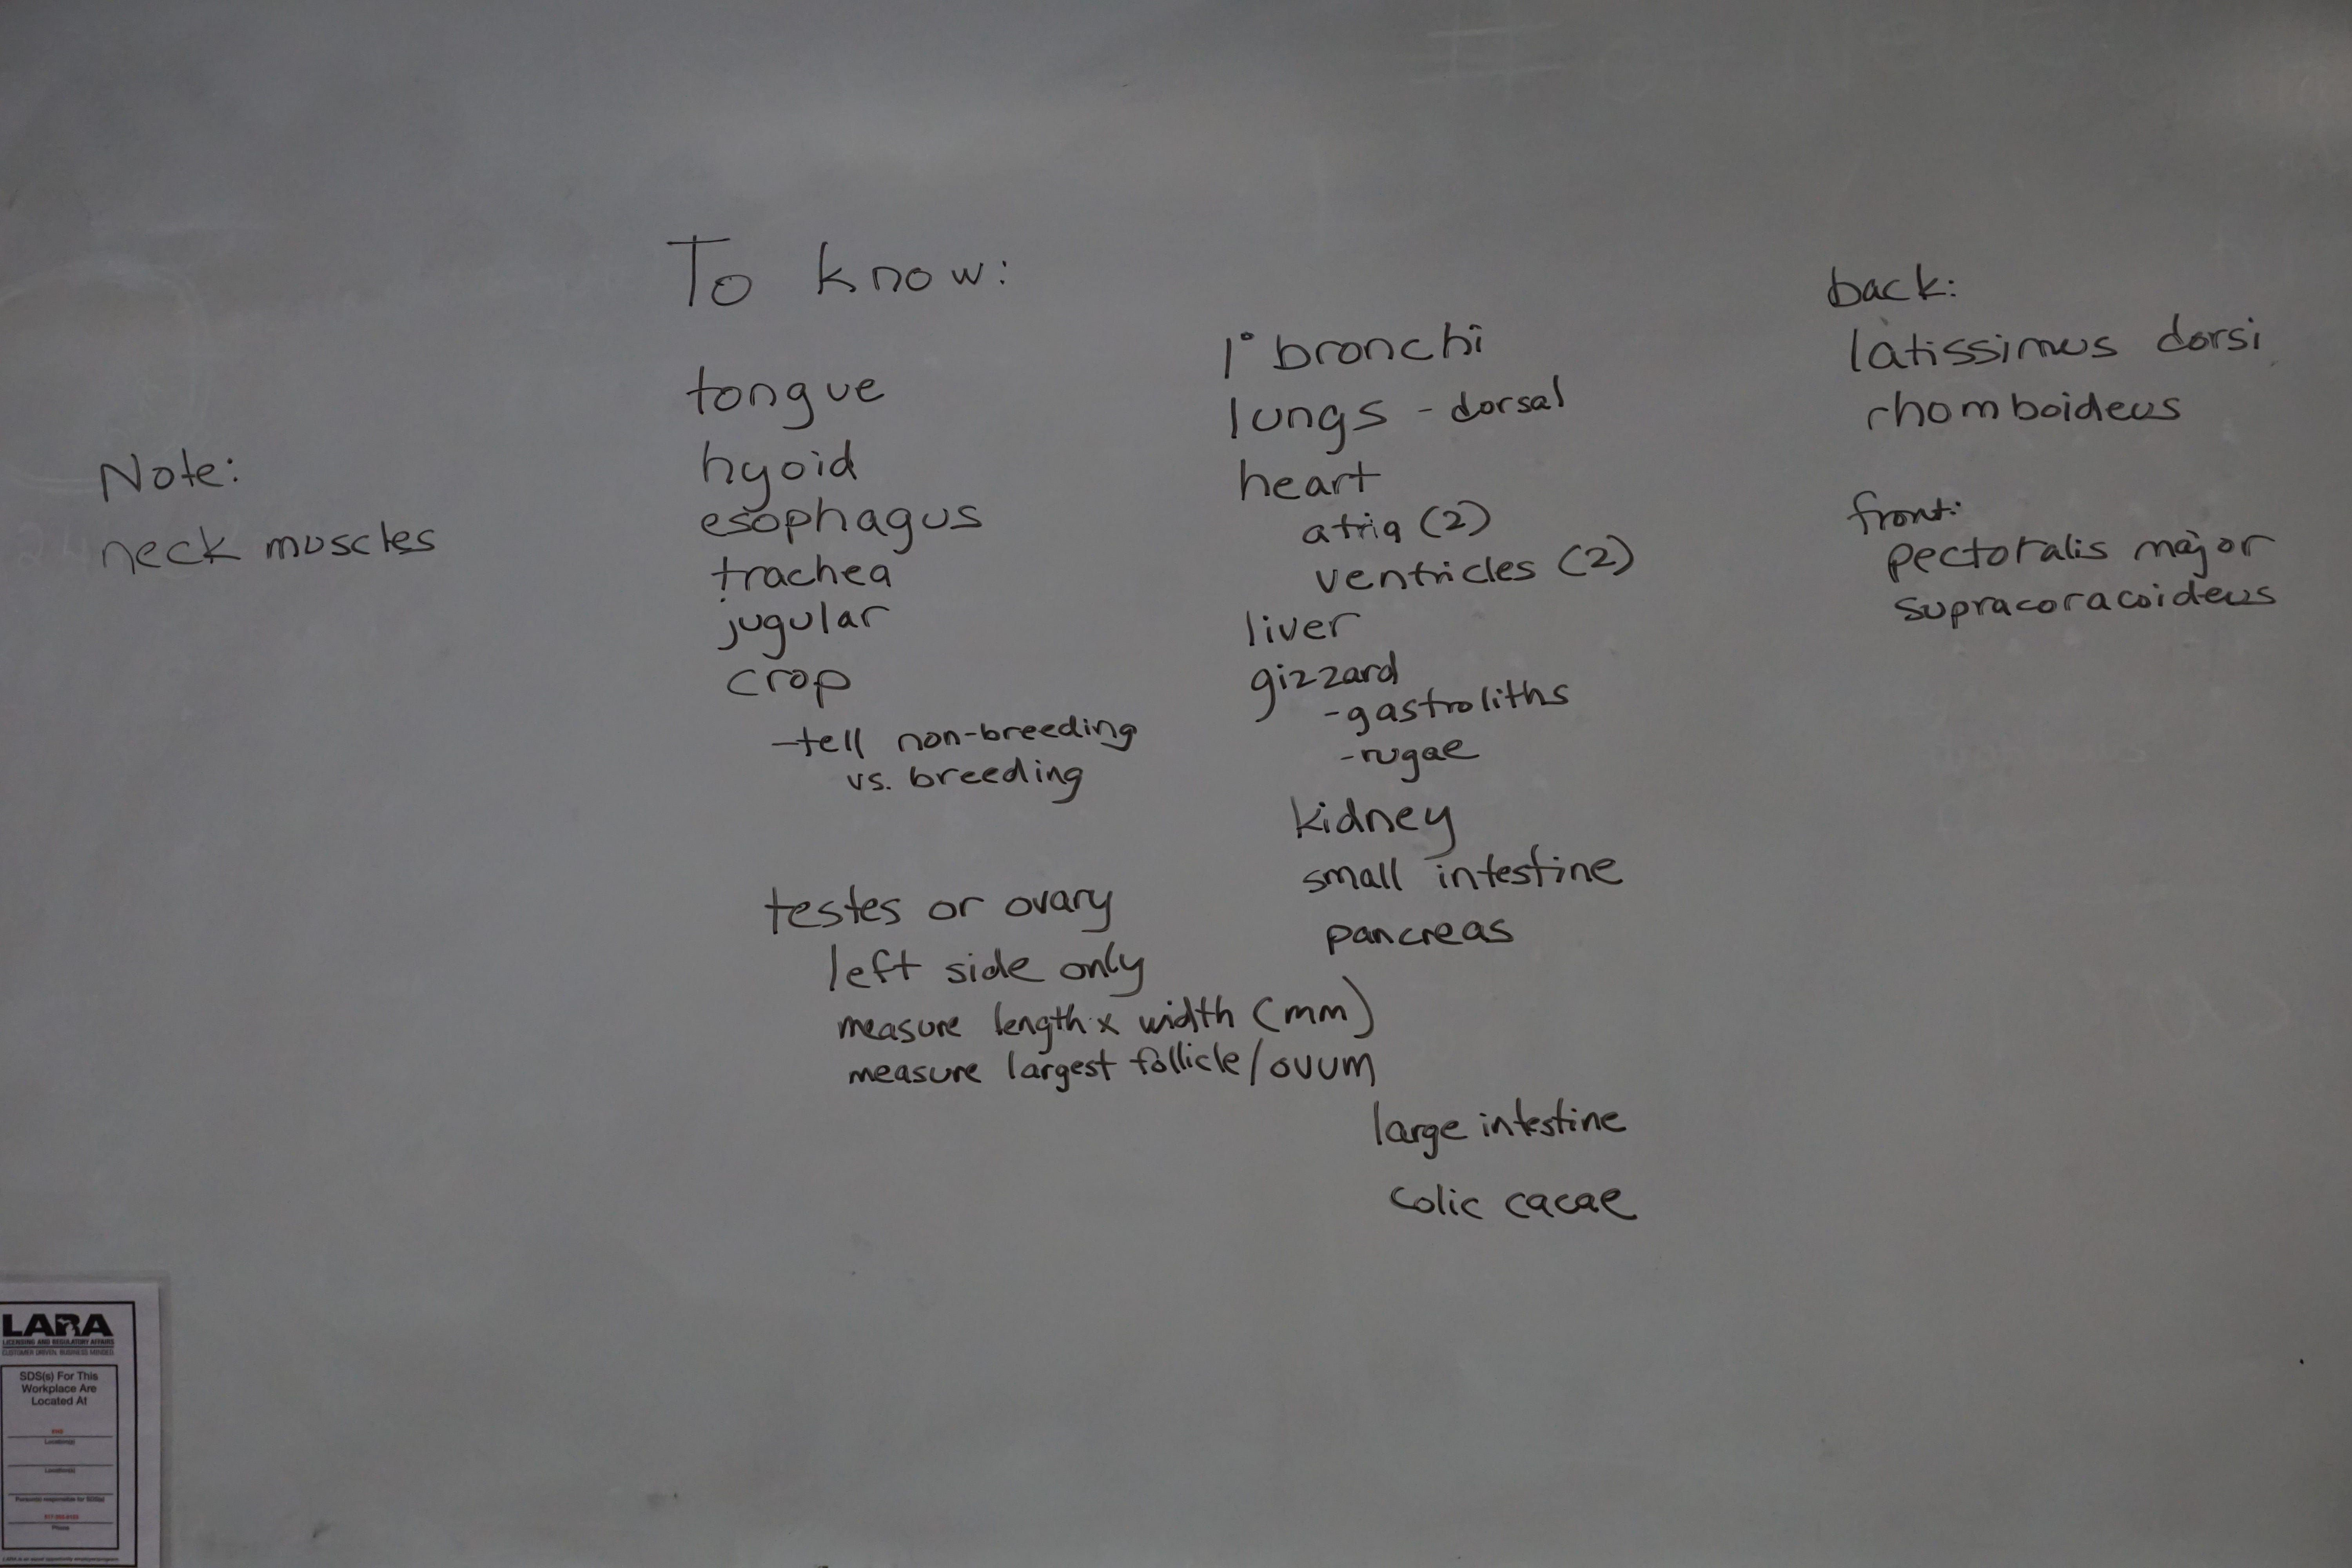 Note:
neck muscles
To know:
tongue
hyoid
esophagus
trachea
jugular
crop
-tell non-breeding
vs. breeding
testes or ovary
left side only
measure length x width (mm)
measure largest follicle/ovum
1° bronchi
lungs - dorsal
heart
atria (2)
ventricles (2)
liver
gizzard
-gastroliths
-rugae
kidney
small intestine
pancreas
large intestine
colic cacae
back:
latissimus dorsi
rhomboideus
front:
pectoralis major
supracoracoideus
LARA
LICENSING AND REGULATORY AFFAIRS
CUSTOMER DRIVEN. BUSINESS MINDED.
SDS(s) For This
Workplace Are
Located At
Location(s)
Location(s)
Person(s) responsible for SDS(s)
Phone